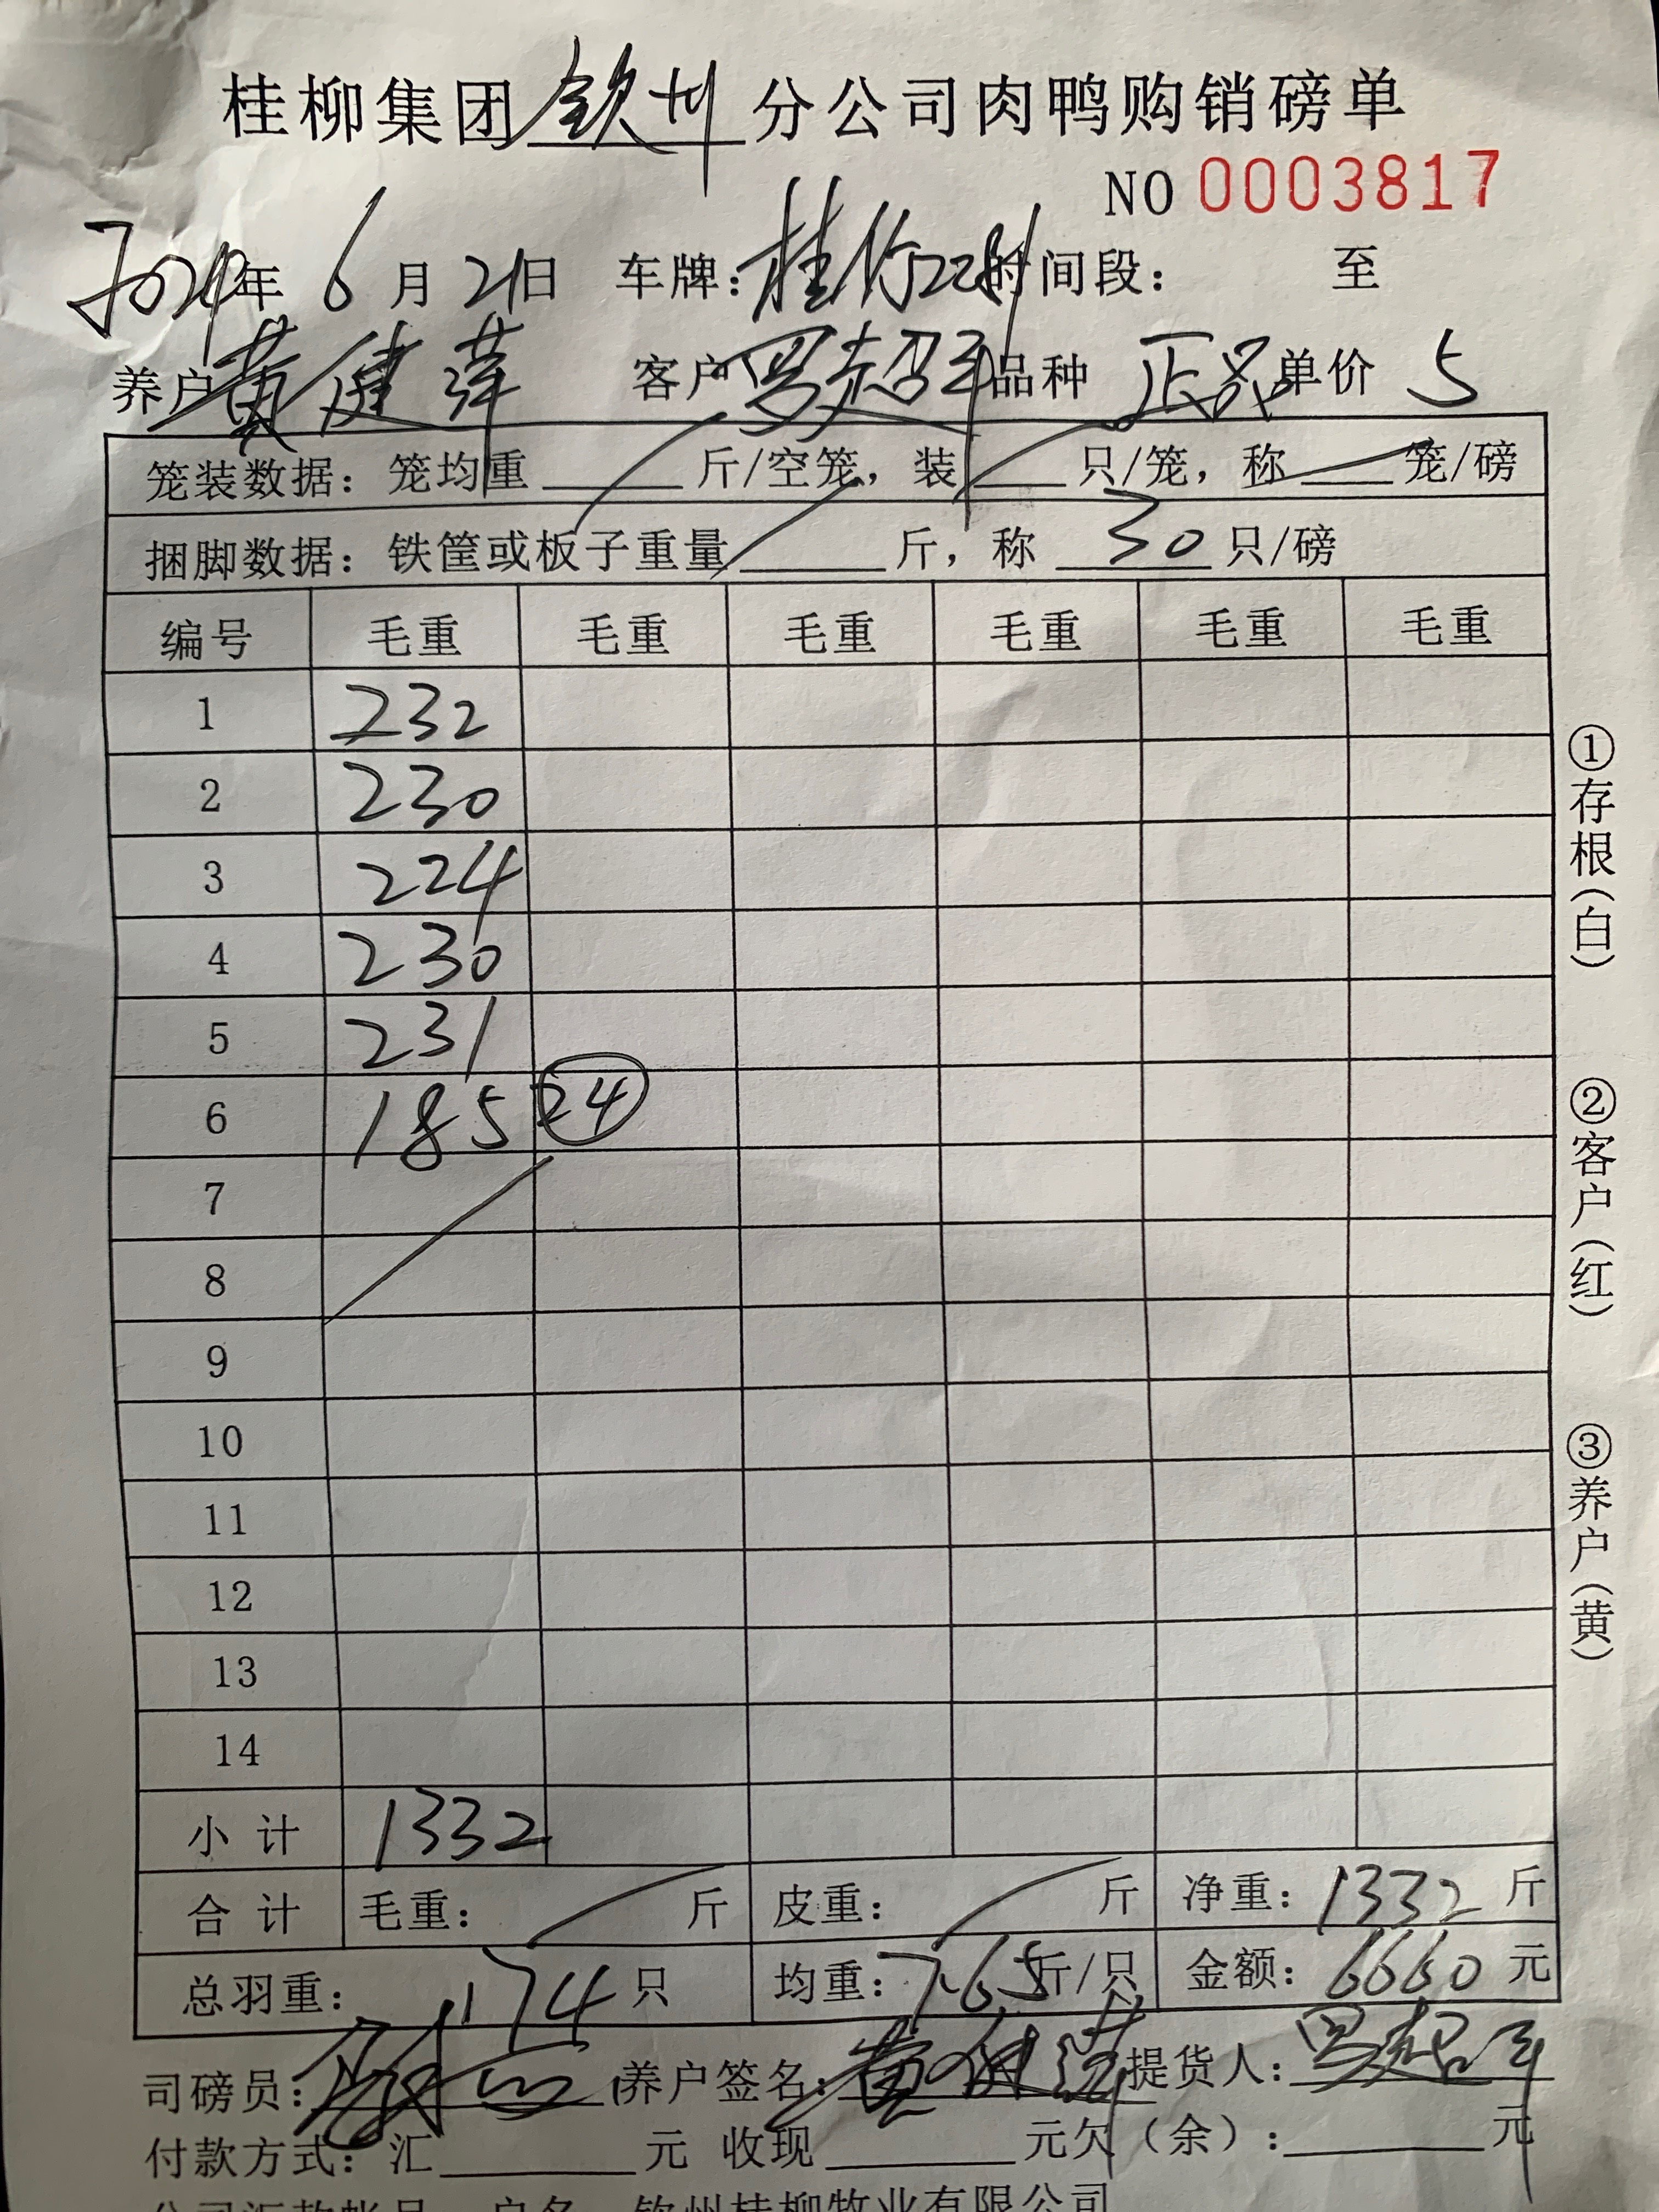 桂柳集团钦州分公司肉鸭购销磅单
NO 0003817
2024年 6月 21日 车牌: 时间段: 至
养户 黄健萍 客户 罗超军 品种 正品 单价 5
笼装数据: 笼均重 斤/空笼, 装 只/笼, 称 笼/磅
捆脚数据: 铁筐或板子重量 斤, 称 30 只/磅
编号 毛重 毛重 毛重 毛重 毛重 毛重
1 232
2 230
3 224
4 230
5 231
6 185 24
7
8
9
10
11
12
13
14
小计 1332
合计 毛重: 斤 皮重: 斤 净重: 1332 斤
总羽重: 174 只 均重: 7.65 斤/只 金额: 6660 元
司磅员: 养户签名: 黄健萍 提货人: 罗超军
付款方式: 汇 元 收现 元欠(余): 元
公司汇款帐号 户名 钦州桂柳牧业有限公司
①存根(白)
②客户(红)
③养户(黄)